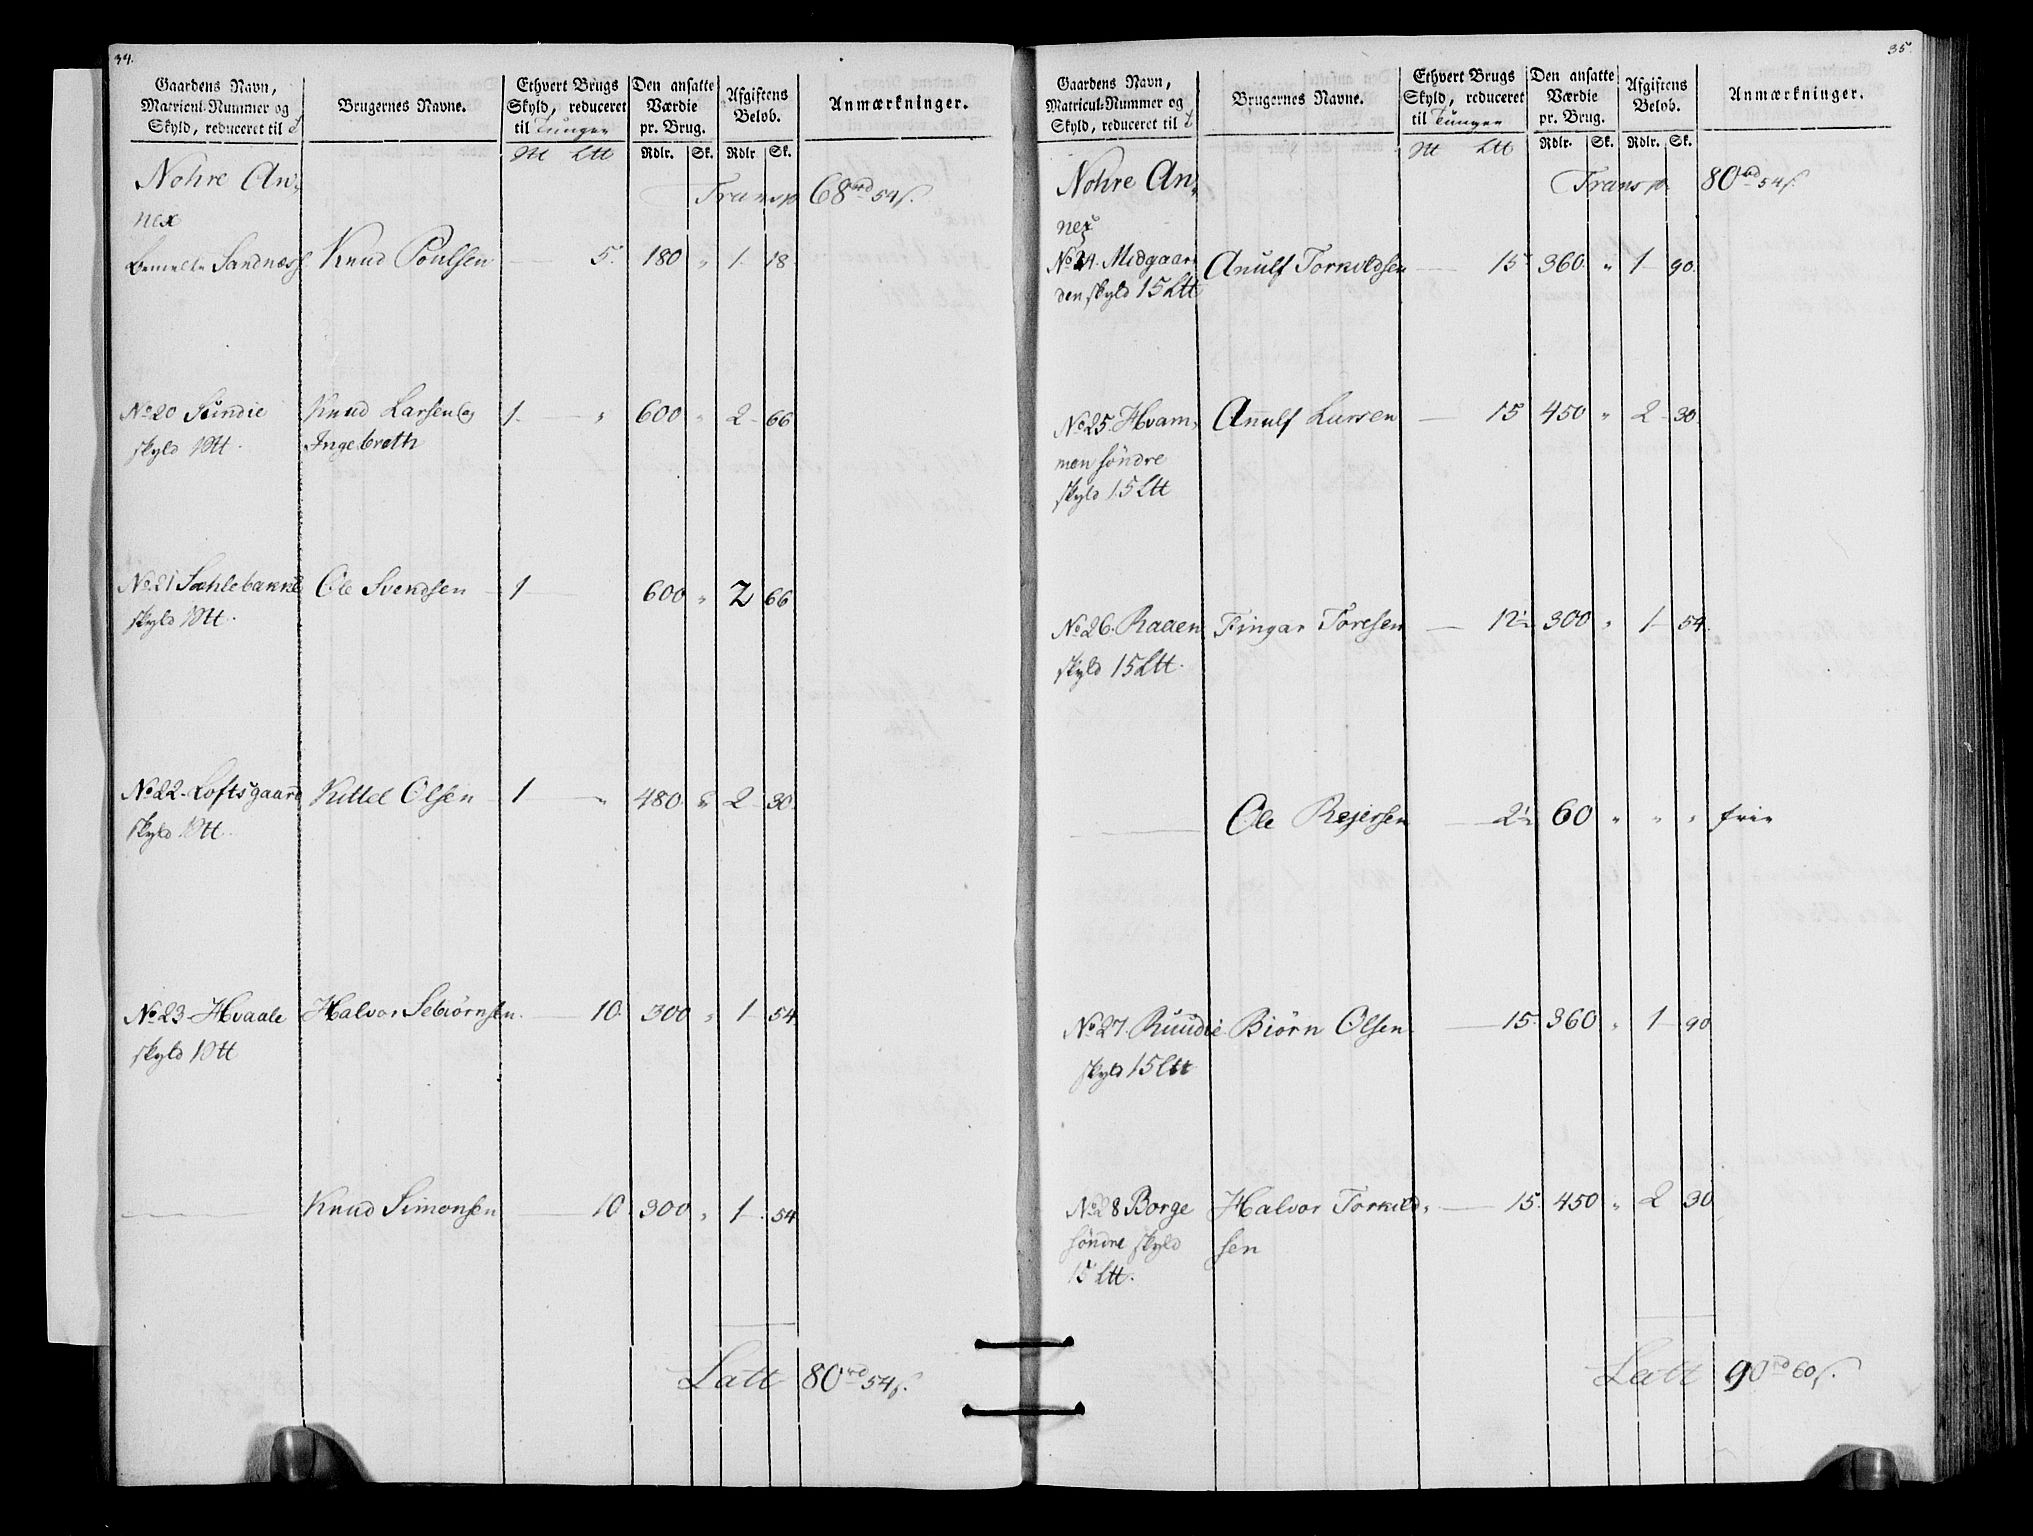 34.
Gaardens Navn, Matricul-Nummer og Skyld, reduceret til
Brugernes Navne.
Ethvert Brugs Skyld, reduceret til Tunger
Den ansatte Værdie pr. Brug.
Afgiftens Beløb.
Anmærkninger.
Rdlr. Sk. Rdlr Sk.
Nohre An-
nex
Transp 68 rd 54 s.
bemelte Sandness Knud Poulsen 5. 180 " 1 18
No 20 Sundie Knud Larsen og 1. " 600 " 2 66
skyld 1 tt. Ingebreth
No 21 Sæhlebakke Ole Svendsen 1 600 " 2 66
skyld 1 tt.
No 22 Loftsgaard Kittel Olsen 1 " 480 " 2 30
skyld 1 tt.
No 23 Hvaale Halvor Sebiørnsen 10. 300 " 1 54
skyld 1 tt
Knud Simonsen 10 300 " 1 54
Latt 80 rd 54 s.
35.
Gaardens Navn, Matricul-Nummer og Skyld, reduceret til
Brugernes Navne.
Ethvert Brugs Skyld, reduceret til Tunger
Den ansatte Værdie pr. Brug.
Afgiftens Beløb.
Anmærkninger.
Rdlr. Sk. Rdlr. Sk.
Nohre An-
nex
Transp. 80 rd 54 s.
No 24. Midgaar- Anulf Torkildsen 15 360 " 1 90.
den skyld 15 Ltt
No 25. Hvam- Anulf Larsen 15 450 " 2 30.
men søndre
skyld 15 Ltt
No 26. Raaen Fingar Toresen 12½ 300 " 1 54.
skyld 15 Ltt.
Ole Rejersen 2½ 60 " " " frie
No 27. Ruudie Biørn Olsen 15. 360 " 1 90
skyld 15 Ltt
No 28 Borge Halvor Torkild- 15. 450 " 2 30
søndre skyld sen
15 Ltt.
Latt 90 rd 60 s.